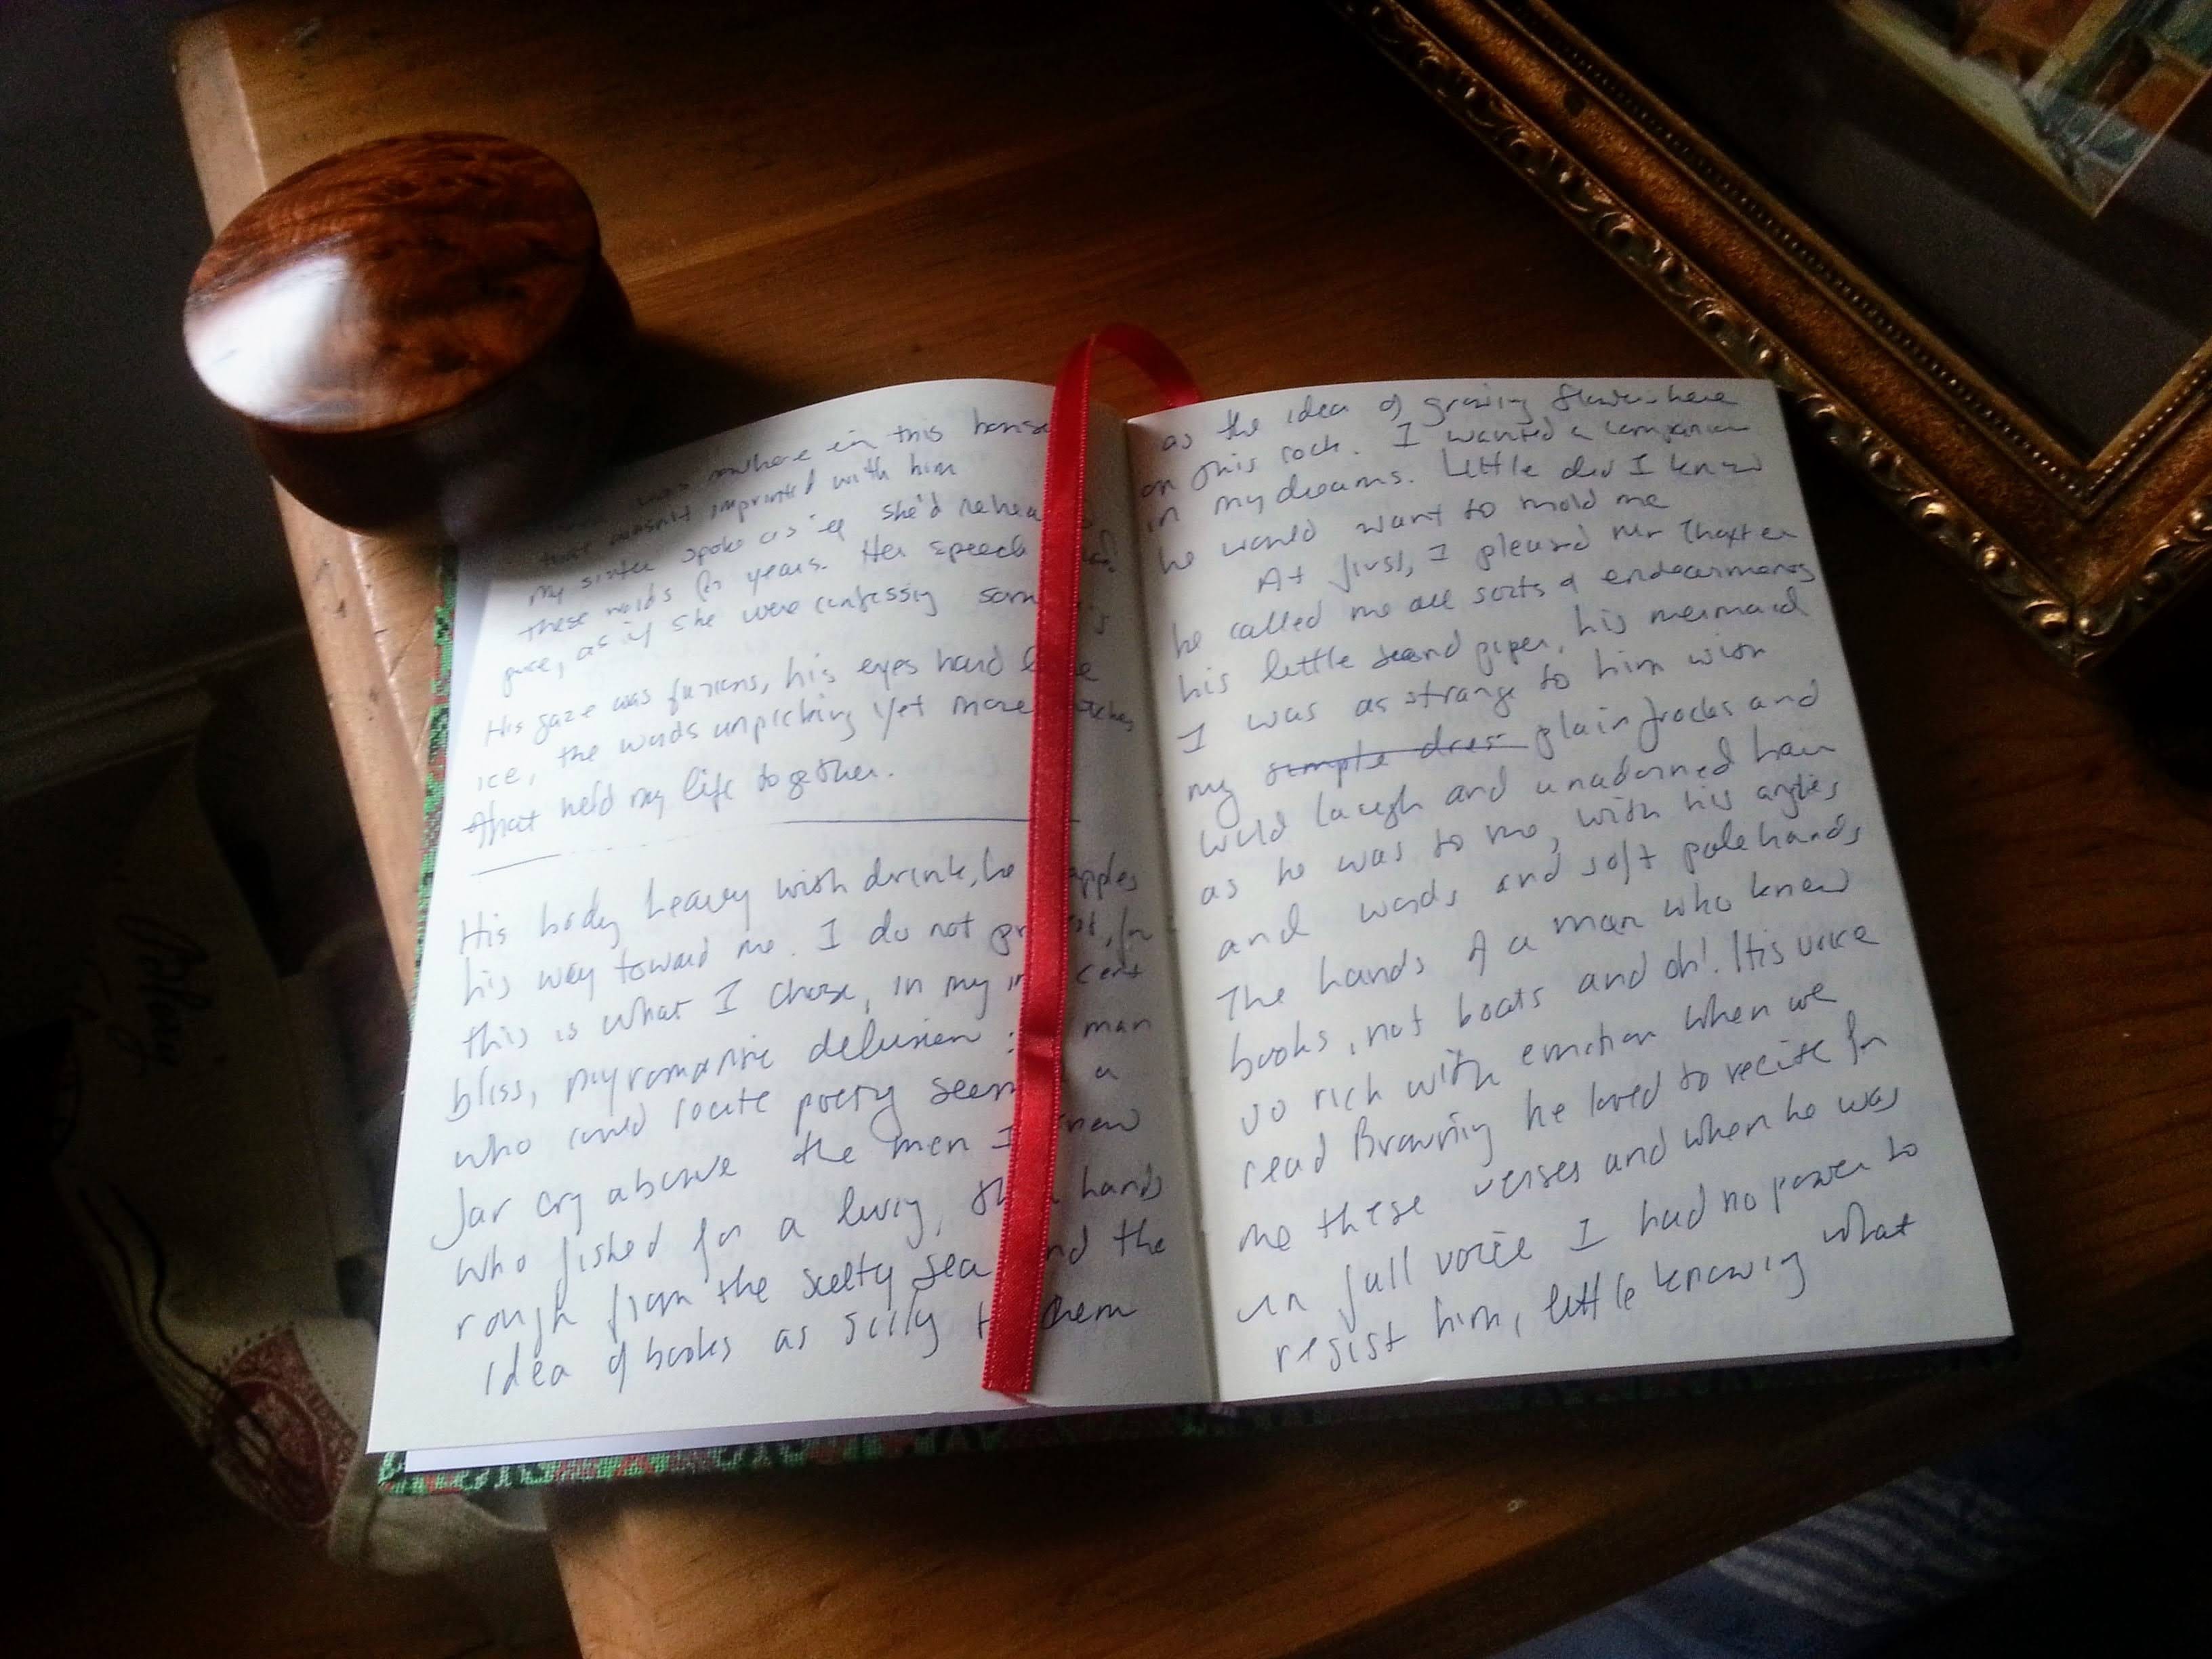 nowhere in this house
that wasn't imprinted with him
my sister spoke as if she'd
these words for years. Her speech
pure, as if she were confessing
His gaze was furious, his eyes hard
ice, the words unpicking yet more
that held my life together.
His body heavy with drink, he
his way toward me. I do not
this is what I chose, in my
bliss, my romantic delusion: man
who could recite poetry a
far cry above the men I
who fished for a living, hands
rough from the salty sea the
idea of books as silly
as the idea of growing flowers here
on this rock. I wanted a companion
in my dreams. Little did I know
he would want to mold me
At first, I pleased Mr Thaxter
he called me all sorts of endearments
his little sand piper, his mermaid
I was as strange to him with
my simple dress plain frocks and
wild laugh and unadorned hair
as he was to me, with his angles
and words and soft pale hands
The hands of a man who knew
books, not boats and oh! His voice
so rich with emotion when we
read Browning he loved to recite for
me these verses and when he was
in full voice I had no power to
resist him, little knowing what